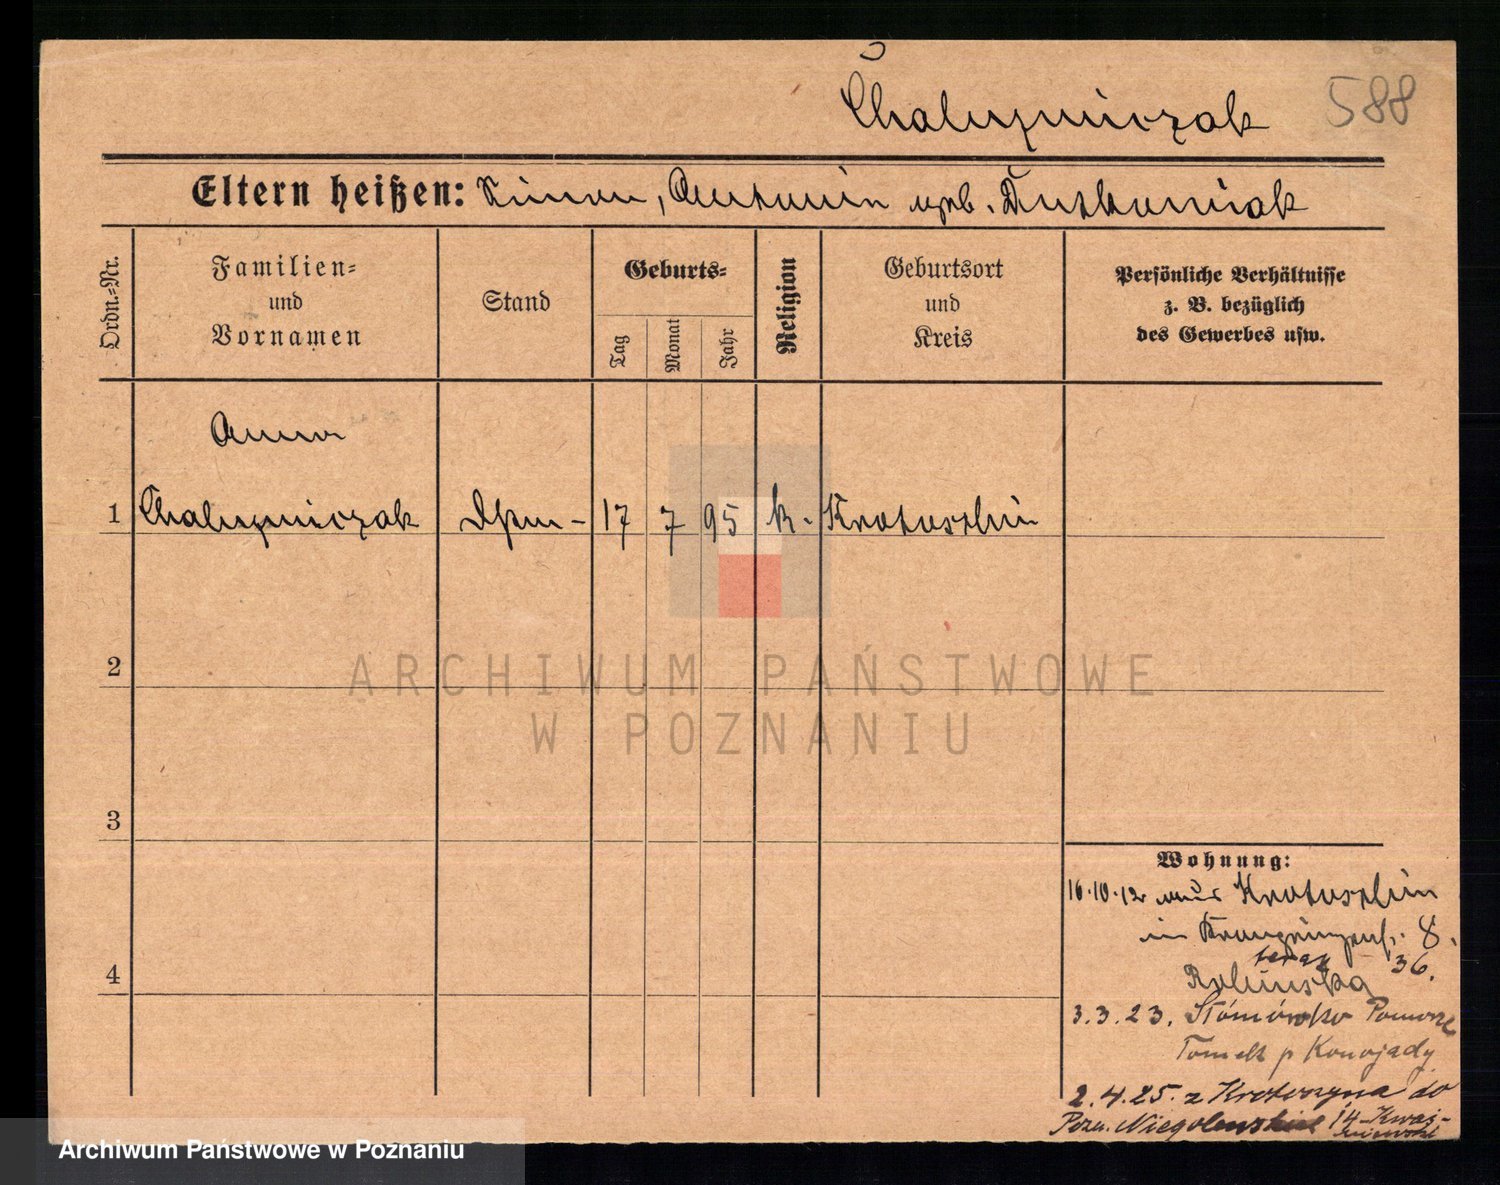 Chaluzniczak 588
Eltern heißen: Simon, Antonie geb. Dutkowiak
Ordn.-Nr.
Familien=
und
Vornamen
Stand
Geburts=
Tag
Monat
Jahr
Religion
Geburtsort
und
Kreis
Persönliche Verhältnisse
z. B. bezüglich
des Gewerbes usw.
Anna
1 Chaluzniczak 17 7 95 k. Krotoschin
2
3
4
Wohnung:
16.10.12 aus Krotoschin
in 8.
teraz 36.
3.3.23. Pomorze
p Konojady
2.4.25. z Krotoszyna do
Pozn. Niegolewskich 14
ARCHIWUM PAŃSTWOWE
W POZNANIU
Archiwum Państwowe w Poznaniu